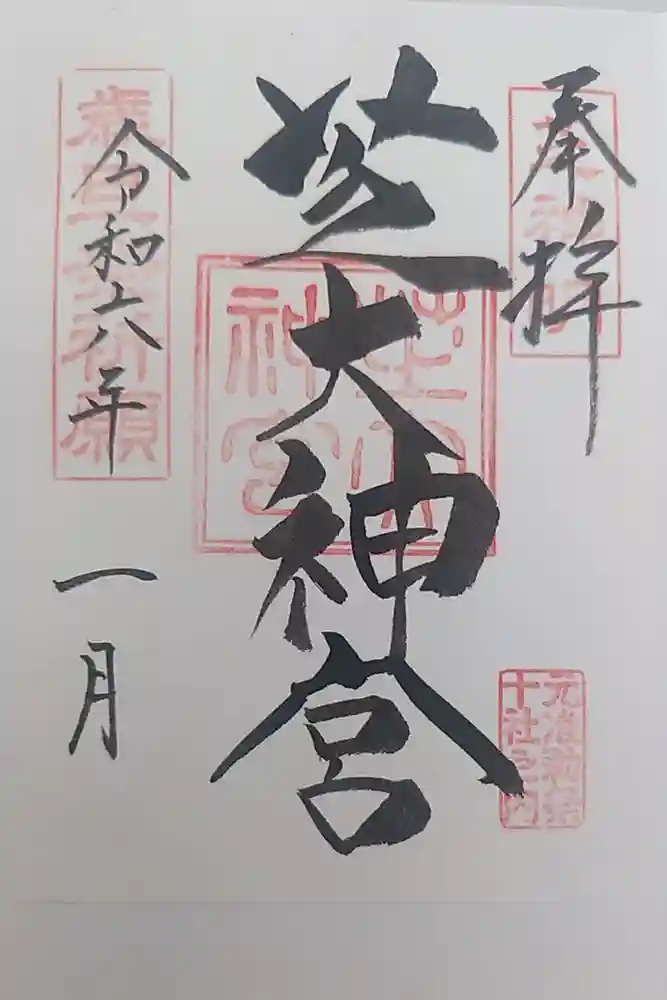 奉拝
芝神明
元准勅祭
十社之内
芝大神宮
芝大
神宮
令和六年
一月
祈願